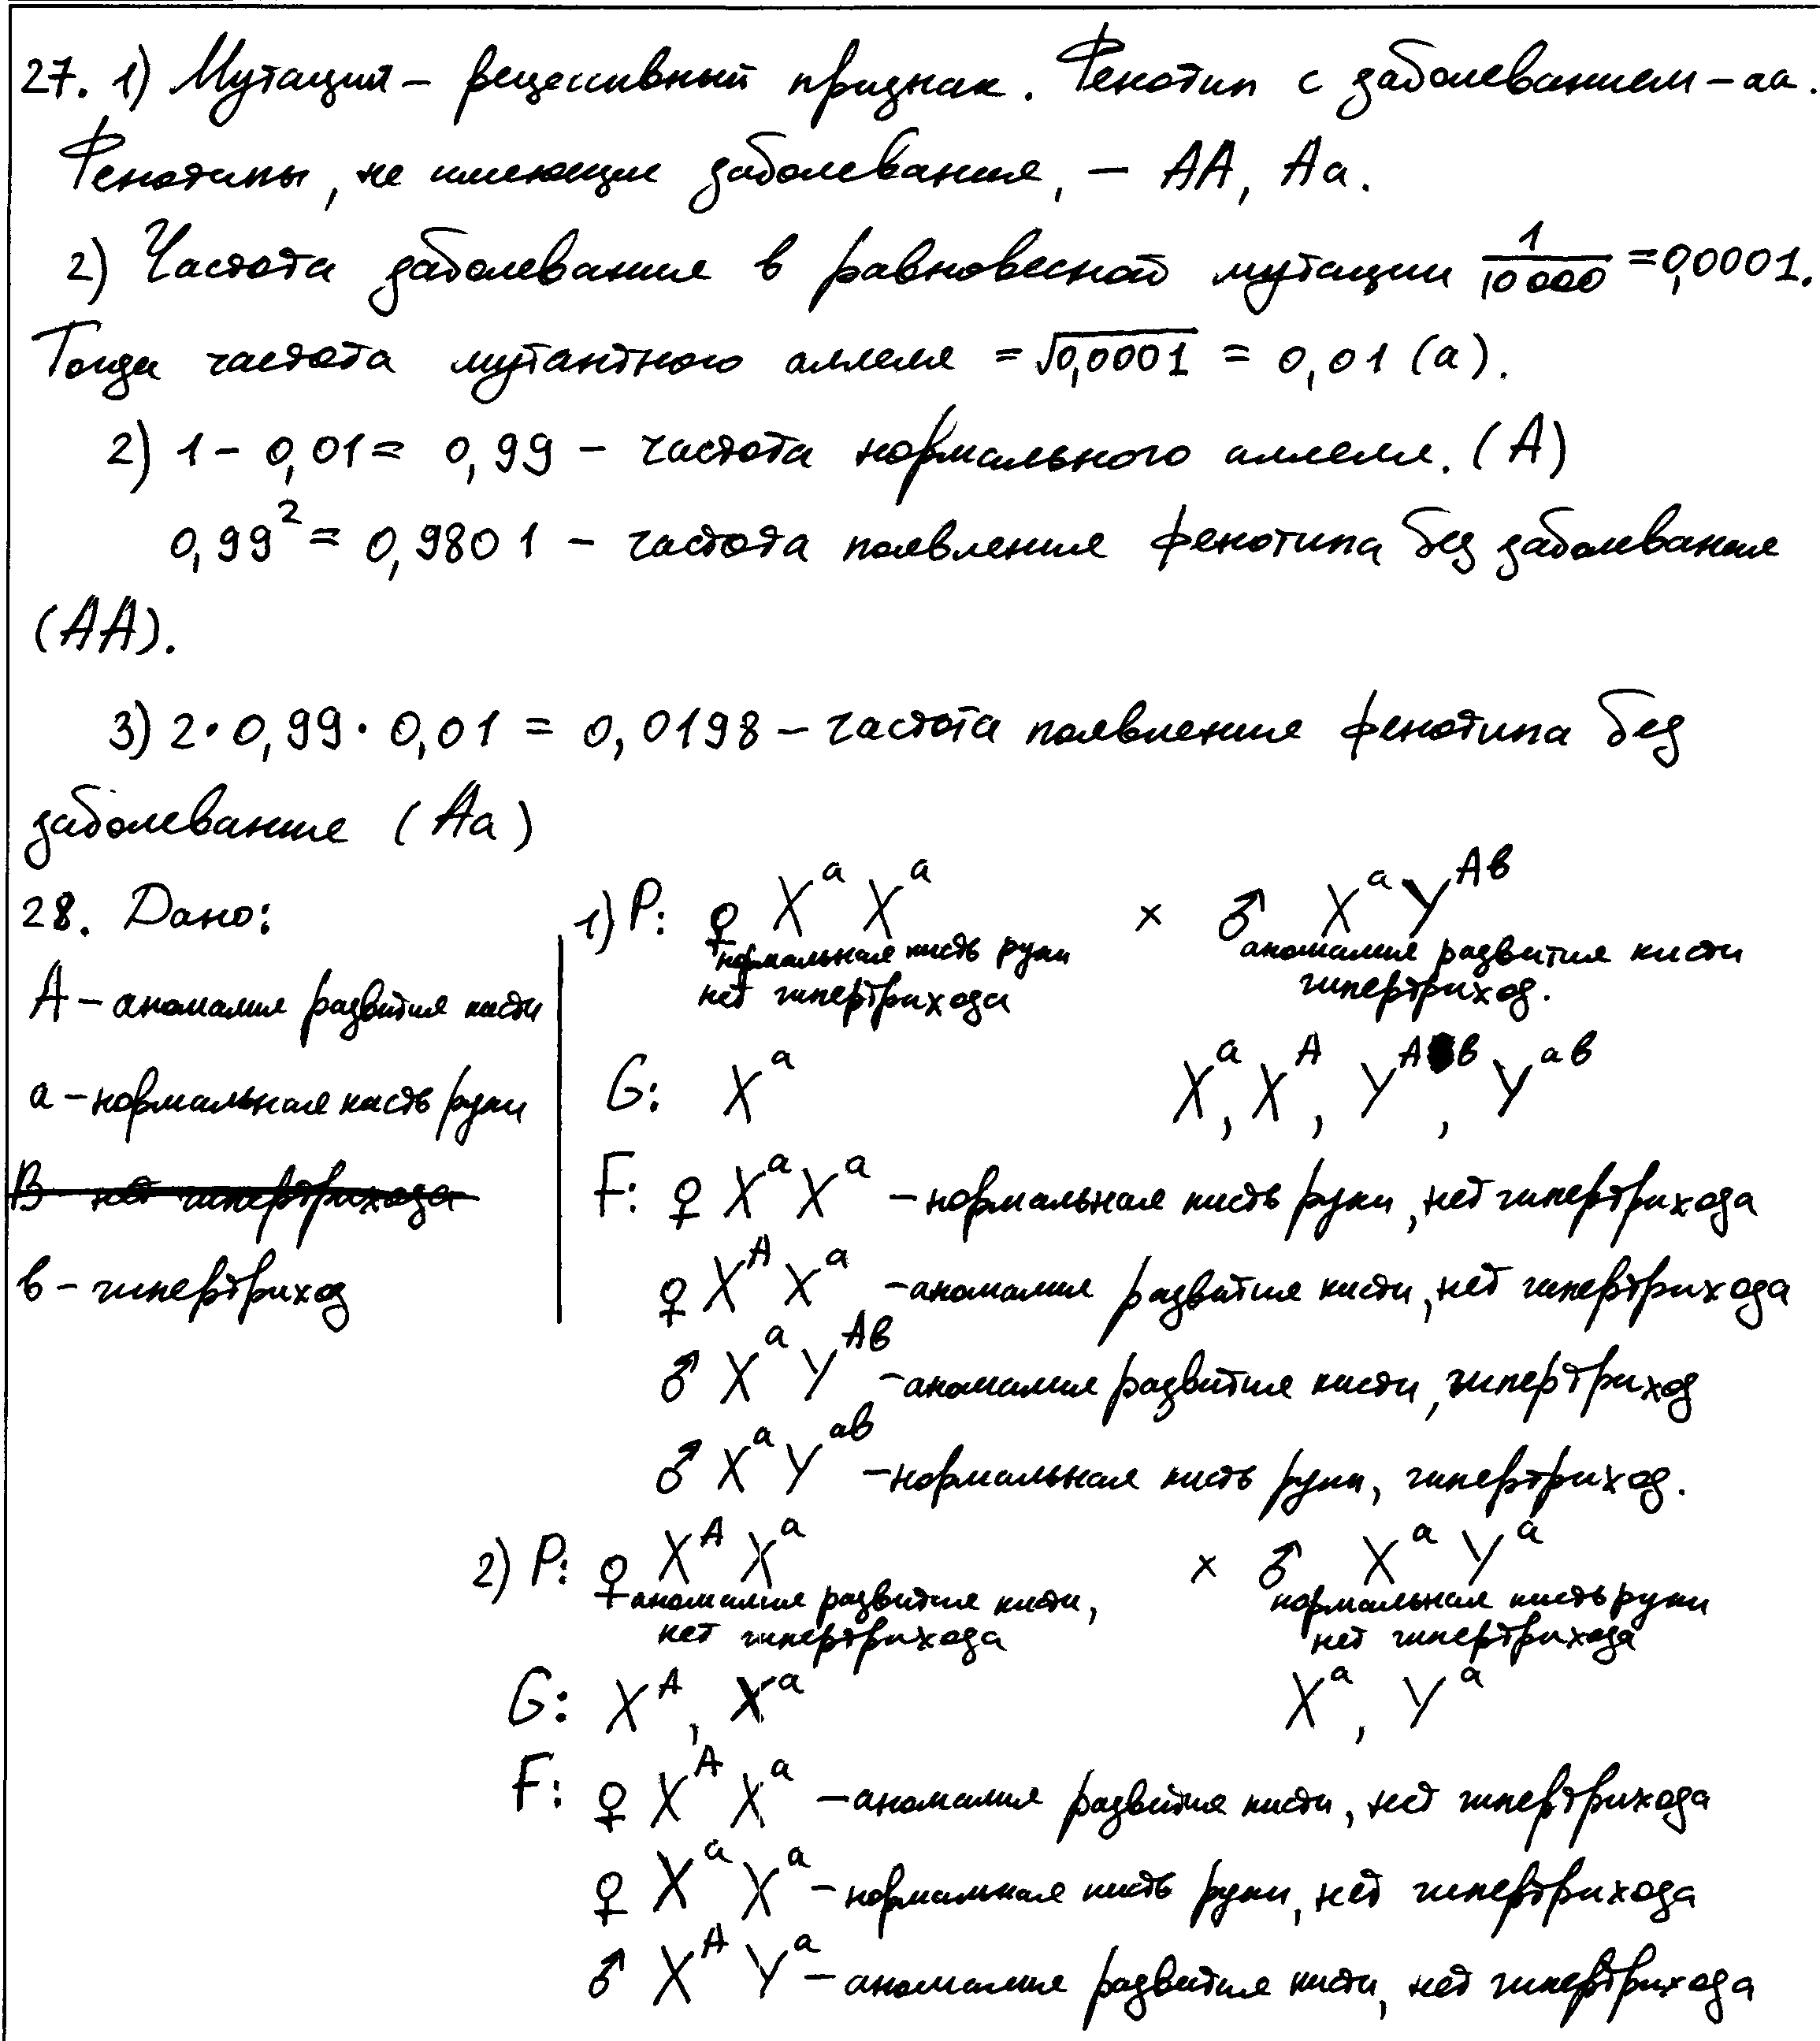 27. 1) Мутация – рецессивный признак. Фенотип с заболеванием – аа.
Фенотипы, не имеющие заболевания, – АА, Аа.
2) Частота заболевания в равновесной мутации 1/10000 = 0,0001.
Тогда частота мутантного аллеля = √0,0001 = 0,01 (а).
2) 1 – 0,01 = 0,99 – частота нормального аллеля. (А)
0,99² = 0,9801 – частота появления фенотипа без заболевания
(АА).
3) 2 · 0,99 · 0,01 = 0,0198 – частота появления фенотипа без
заболевания (Аа)
28. Дано:
А – аномалия развития кисти
а – нормальная кисть руки
В – нет гипертрихода
в – гипертриход
1) Р: ♀ Xᵃ Xᵃ × ♂ Xᵃ Yᴬᵇ
нормальная кисть руки аномалия развития кисти
нет гипертрихода гипертриход.
G: Xᵃ Xᵃ, Xᴬ, Yᴬᵇ, Yᵃᵇ
F: ♀ Xᵃ Xᵃ – нормальная кисть руки, нет гипертрихода
♀ Xᴬ Xᵃ – аномалия развития кисти, нет гипертрихода
♂ Xᵃ Yᴬᵇ – аномалия развития кисти, гипертриход
♂ Xᵃ Yᵃᵇ – нормальная кисть руки, гипертриход.
2) Р: ♀ Xᴬ Xᵃ × ♂ Xᵃ Yᵃ
аномалия развития кисти, нормальная кисть руки
нет гипертрихода нет гипертрихода
G: Xᴬ, Xᵃ Xᵃ, Yᵃ
F: ♀ Xᴬ Xᵃ – аномалия развития кисти, нет гипертрихода
♀ Xᵃ Xᵃ – нормальная кисть руки, нет гипертрихода
♂ Xᴬ Yᵃ – аномалия развития кисти, нет гипертрихода